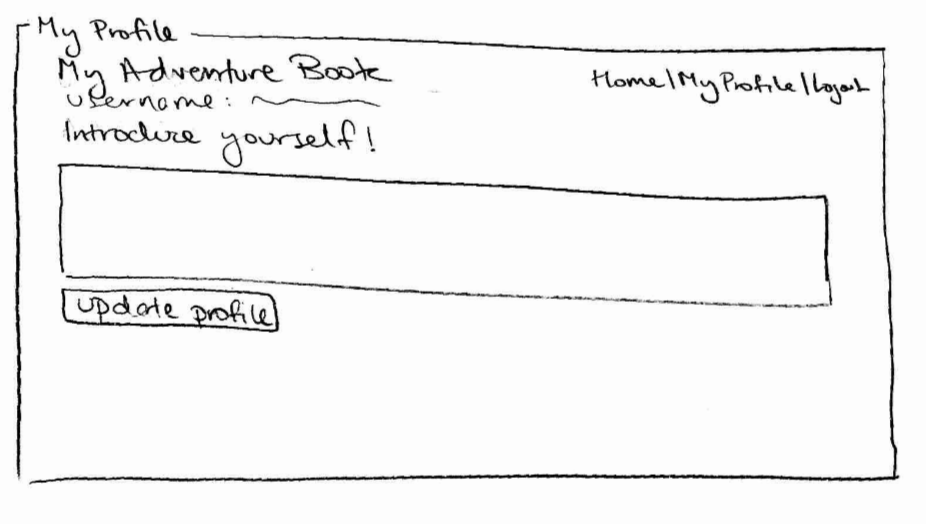 My Profile
My Adventure Book
Home|My Profile|Logout
username:
Introduce yourself!
update profile